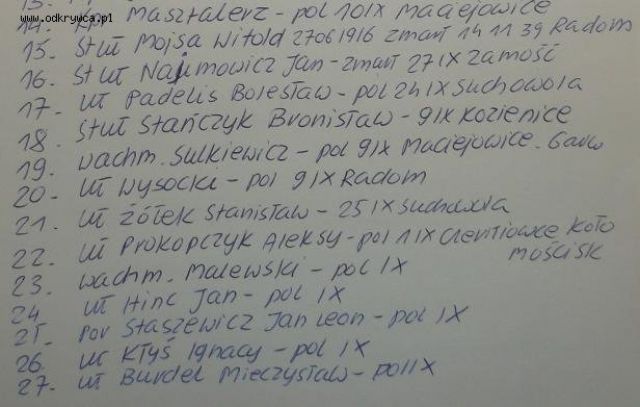 www.odkrywca.pl
14. Masztalerz - pol 10 IX Maciejowice
15. St uł Mojsa Witold 27061916 zmarł 14 11 39 Radom
16. St uł Naumowicz Jan - zmarł 27 IX Zamość
17. uł Padelis Bolesław - pol 24 IX Suchowola
18. St uł Stańczyk Bronisław - 9 IX Kozienice
19. wachm. Sulkiewicz - pol 9 IX Maciejowice. Garw
20. uł Wysocki - pol 9 IX Radom
21. uł Żółek Stanisław - 25 IX Suchowola
22. uł Prokopczyk Aleksy - pol 11 IX koło
Mościsk
23. wachm. Malewski - pol IX
24 uł Hinc Jan - pol IX
25. por Staszewicz Jan Leon - pol IX
26. uł Kłyś Ignacy - pol IX
27. uł Burdel Mieczysław - pol IX